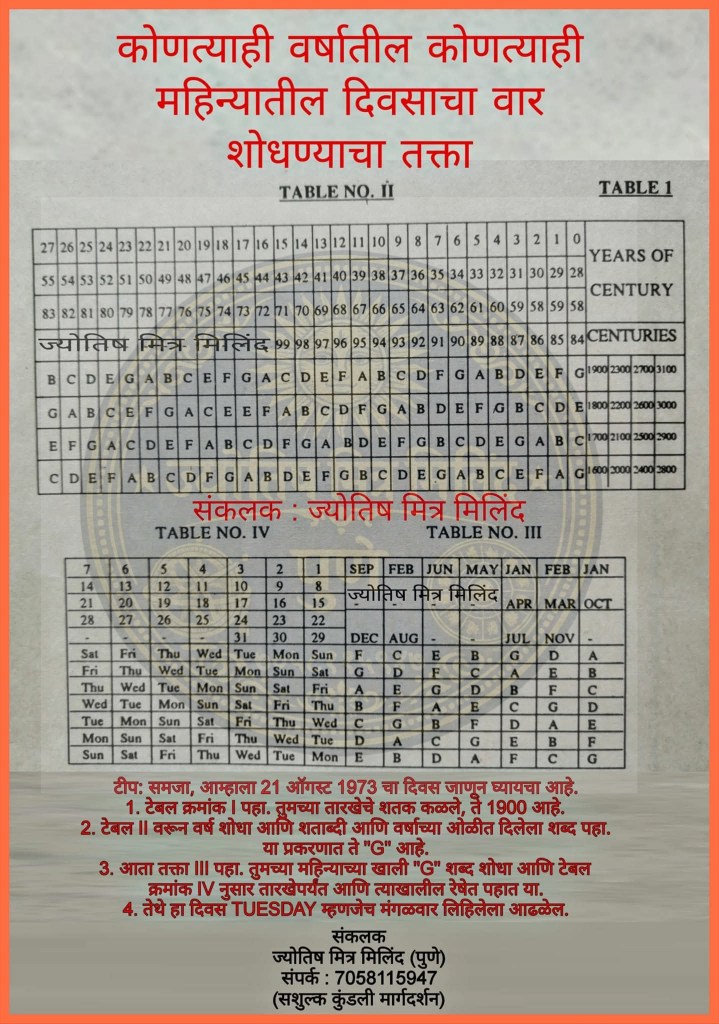 कोणत्याही वर्षातील कोणत्याही
महिन्यातील दिवसाचा वार
शोधण्याचा तक्ता
TABLE NO. II TABLE 1
27 26 25 24 23 22 21 20 19 18 17 16 15 14 13 12 11 10 9 8 7 6 5 4 3 2 1 0 YEARS OF
55 54 53 52 51 50 49 48 47 46 45 44 43 42 41 40 39 38 37 36 35 34 33 32 31 30 29 28 CENTURY
83 82 81 80 79 78 77 76 75 74 73 72 71 70 69 68 67 66 65 64 63 62 61 60 59 58 59 58
ज्योतिष मित्र मिलिंद 99 98 97 96 95 94 93 92 91 90 89 88 87 86 85 84 CENTURIES
B C D E G A B C E F G A C D E F A B C D F G A B D E F G 1900 2300 2700 3100
G A B C E F G A C E E F A B C D F G A B D E F G B C D E 1800 2200 2600 3000
E F G A C D E F A B C D F G A B D E F G B C D E G A B C 1700 2100 2500 2900
C D E F A B C D F G A B D E F G B C D E G A B C E F A G 1600 2000 2400 2800
संकलक : ज्योतिष मित्र मिलिंद
TABLE NO. IV TABLE NO. III
7 6 5 4 3 2 1 SEP FEB JUN MAY JAN FEB JAN
14 13 12 11 10 9 8 ज्योतिष मित्र मिलिंद
21 20 19 18 17 16 15 APR MAR OCT
28 27 26 25 24 23 22
- - - - 31 30 29 DEC AUG - - JUL NOV -
Sat Fri Thu Wed Tue Mon Sun F C E B G D A
Fri Thu Wed Tue Mon Sun Sat G D F C A E B
Thu Wed Tue Mon Sun Sat Fri A E G D B F C
Wed Tue Mon Sun Sat Fri Thu B F A E C G D
Tue Mon Sun Sat Fri Thu Wed C G B F D A E
Mon Sun Sat Fri Thu Wed Tue D A C G E B F
Sun Sat Fri Thu Wed Tue Mon E B D A F C G
टीप: समजा, आम्हाला 21 ऑगस्ट 1973 चा दिवस जाणून घ्यायचा आहे.
1. टेबल क्रमांक I पहा. तुमच्या तारखेचे शतक कळले, ते 1900 आहे.
2. टेबल II वरून वर्ष शोधा आणि शताब्दी आणि वर्षाच्या ओळीत दिलेला शब्द पहा.
या प्रकरणात ते "G" आहे.
3. आता तक्ता III पहा. तुमच्या महिन्याच्या खाली "G" शब्द शोधा आणि टेबल
क्रमांक IV नुसार तारखेपर्यंत आणि त्याखालील रेषेत पहात या.
4. तेथे हा दिवस TUESDAY म्हणजेच मंगळवार लिहिलेला आढळेल.
संकलक
ज्योतिष मित्र मिलिंद (पुणे)
संपर्क : 7058115947
(सशुल्क कुंडली मार्गदर्शन)